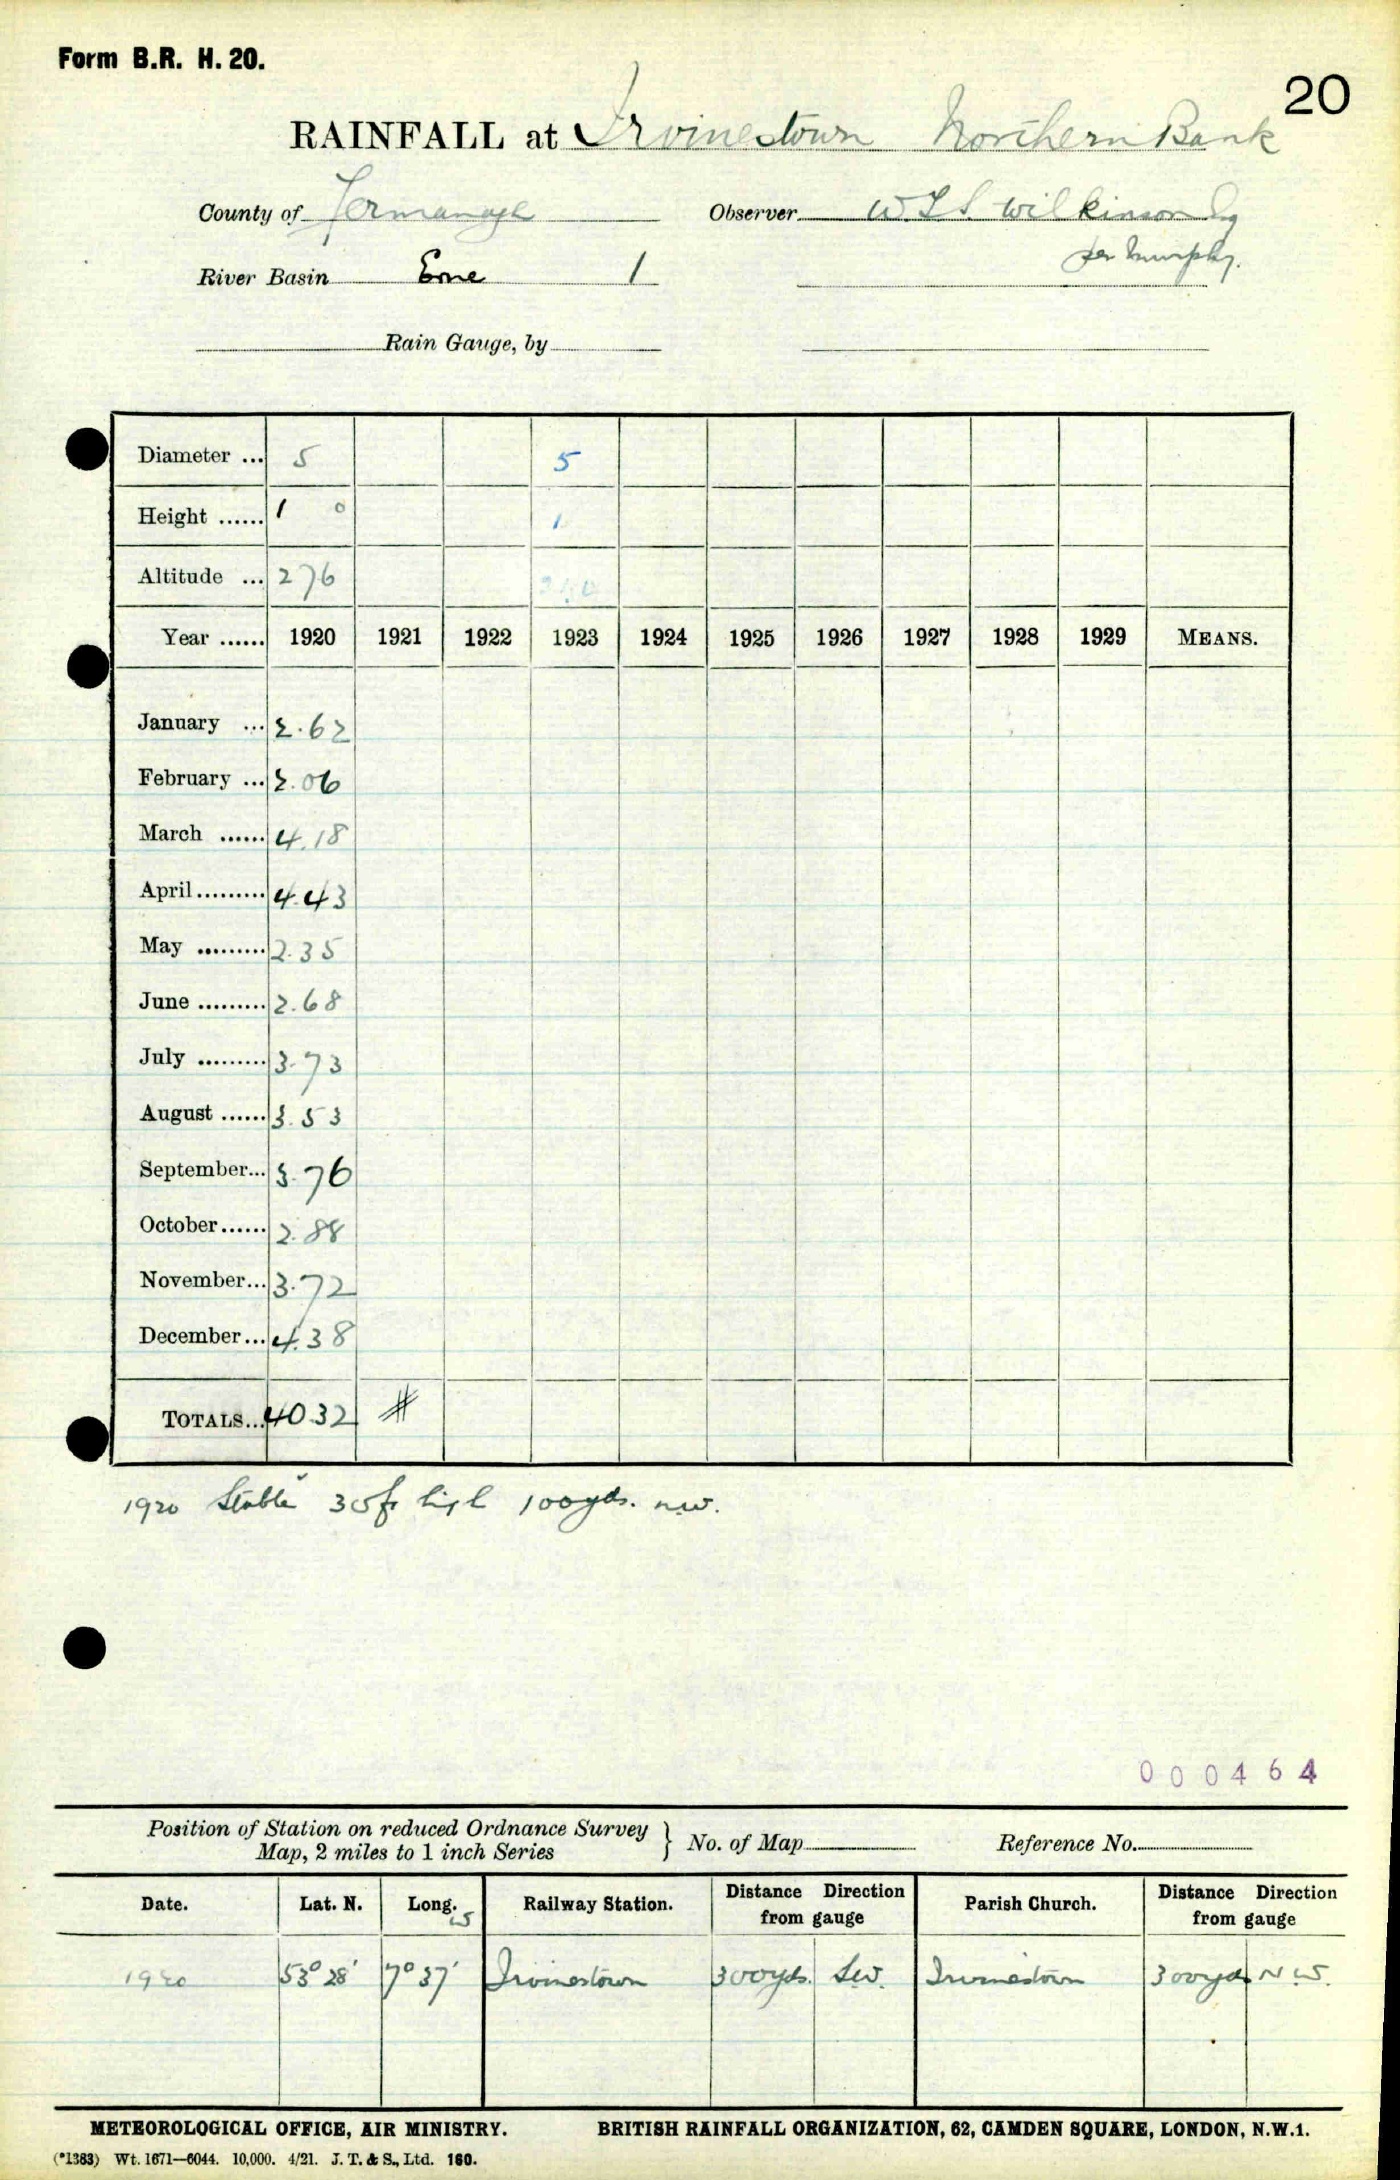 Form B.R. H. 20.
20
RAINFALL at Irvinestown Northern Bank
County of Fermanagh Observer W.T.S. Wilkinson Esq
per Murphy.
River Basin Erne 1
Rain Gauge, by
Diameter ... 5 5
Height ...... 1 0 1
Altitude ... 276
Year ...... 1920 1921 1922 1923 1924 1925 1926 1927 1928 1929 MEANS.
January ... 2.62
February ... 2.06
March ...... 4.18
April......... 4.43
May ......... 2.35
June ......... 2.68
July ......... 3.73
August ...... 3.53
September... 3.76
October...... 2.88
November... 3.72
December... 4.38
TOTALS... 40.32 #
1920 Stable 30ft high 100yds. NW.
000464
Position of Station on reduced Ordnance Survey
Map, 2 miles to 1 inch Series } No. of Map Reference No.
Date. Lat. N. Long. W Railway Station. Distance Direction from gauge Parish Church. Distance Direction from gauge
1920 53° 28' 7° 37' Irvinestown 300yds. SW. Irvinestown 300yds N.W.
METEOROLOGICAL OFFICE, AIR MINISTRY. BRITISH RAINFALL ORGANIZATION, 62, CAMDEN SQUARE, LONDON, N.W.1.
(*1383) Wt. 1671—6044. 10,000. 4/21. J. T. & S., Ltd. 160.